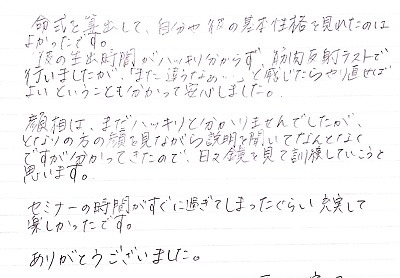 命式を算出して、自分や彼の基本性格を見れたのは
よかったです。
彼の生出時間がハッキリ分からず、筋肉反射テストで
行いましたが、「また違うなぁ…」と感じたらやり直せば
よいということも分かって安心しました。
顔相は、まだハッキリと分かりませんでしたが、
となりの方の顔を見ながら説明を聞いてなんとなく
ですが分かってきたので、日々鏡を見て訓練していこうと
思います。
セミナーの時間がすぐに過ぎてしまったぐらい充実して
楽しかったです。
ありがとうございました。